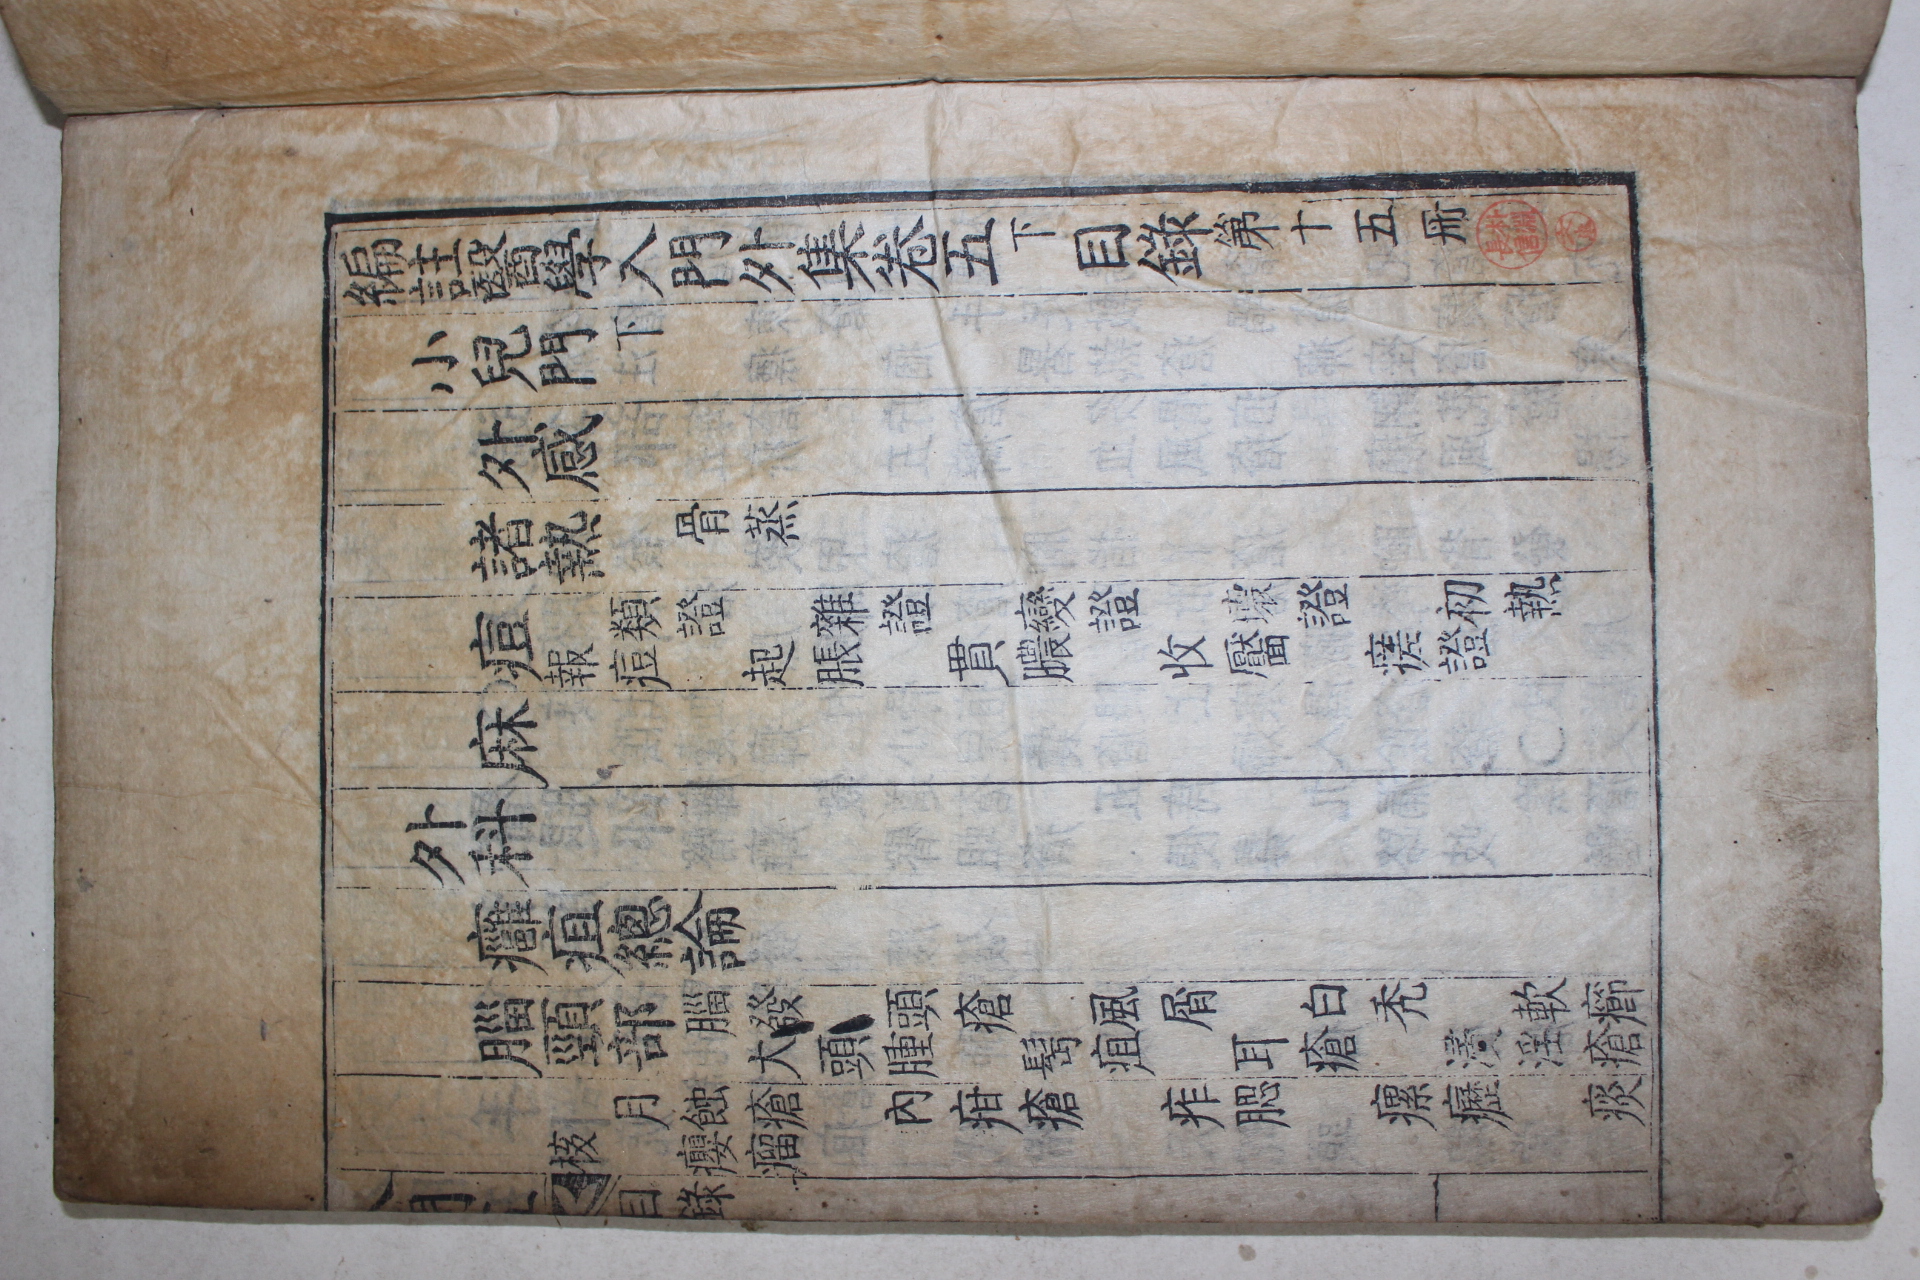 編註醫學入門外集卷五下 目錄第十五冊
小兒門下
外感
諸熱 骨蒸
痘 類證 雜證 變證 壞證 初熱
報痘 起脹 貫膿 收靨 痘證
麻
外科
癰疽總論
腦頸部 腦發 頭瘡 風屑 白禿 軟癤
大頭腫 髩疽 耳瘡 浸淫瘡
月蝕瘡 內疳瘡 痄腮 瘰癧 痰
核 癭瘤
目錄